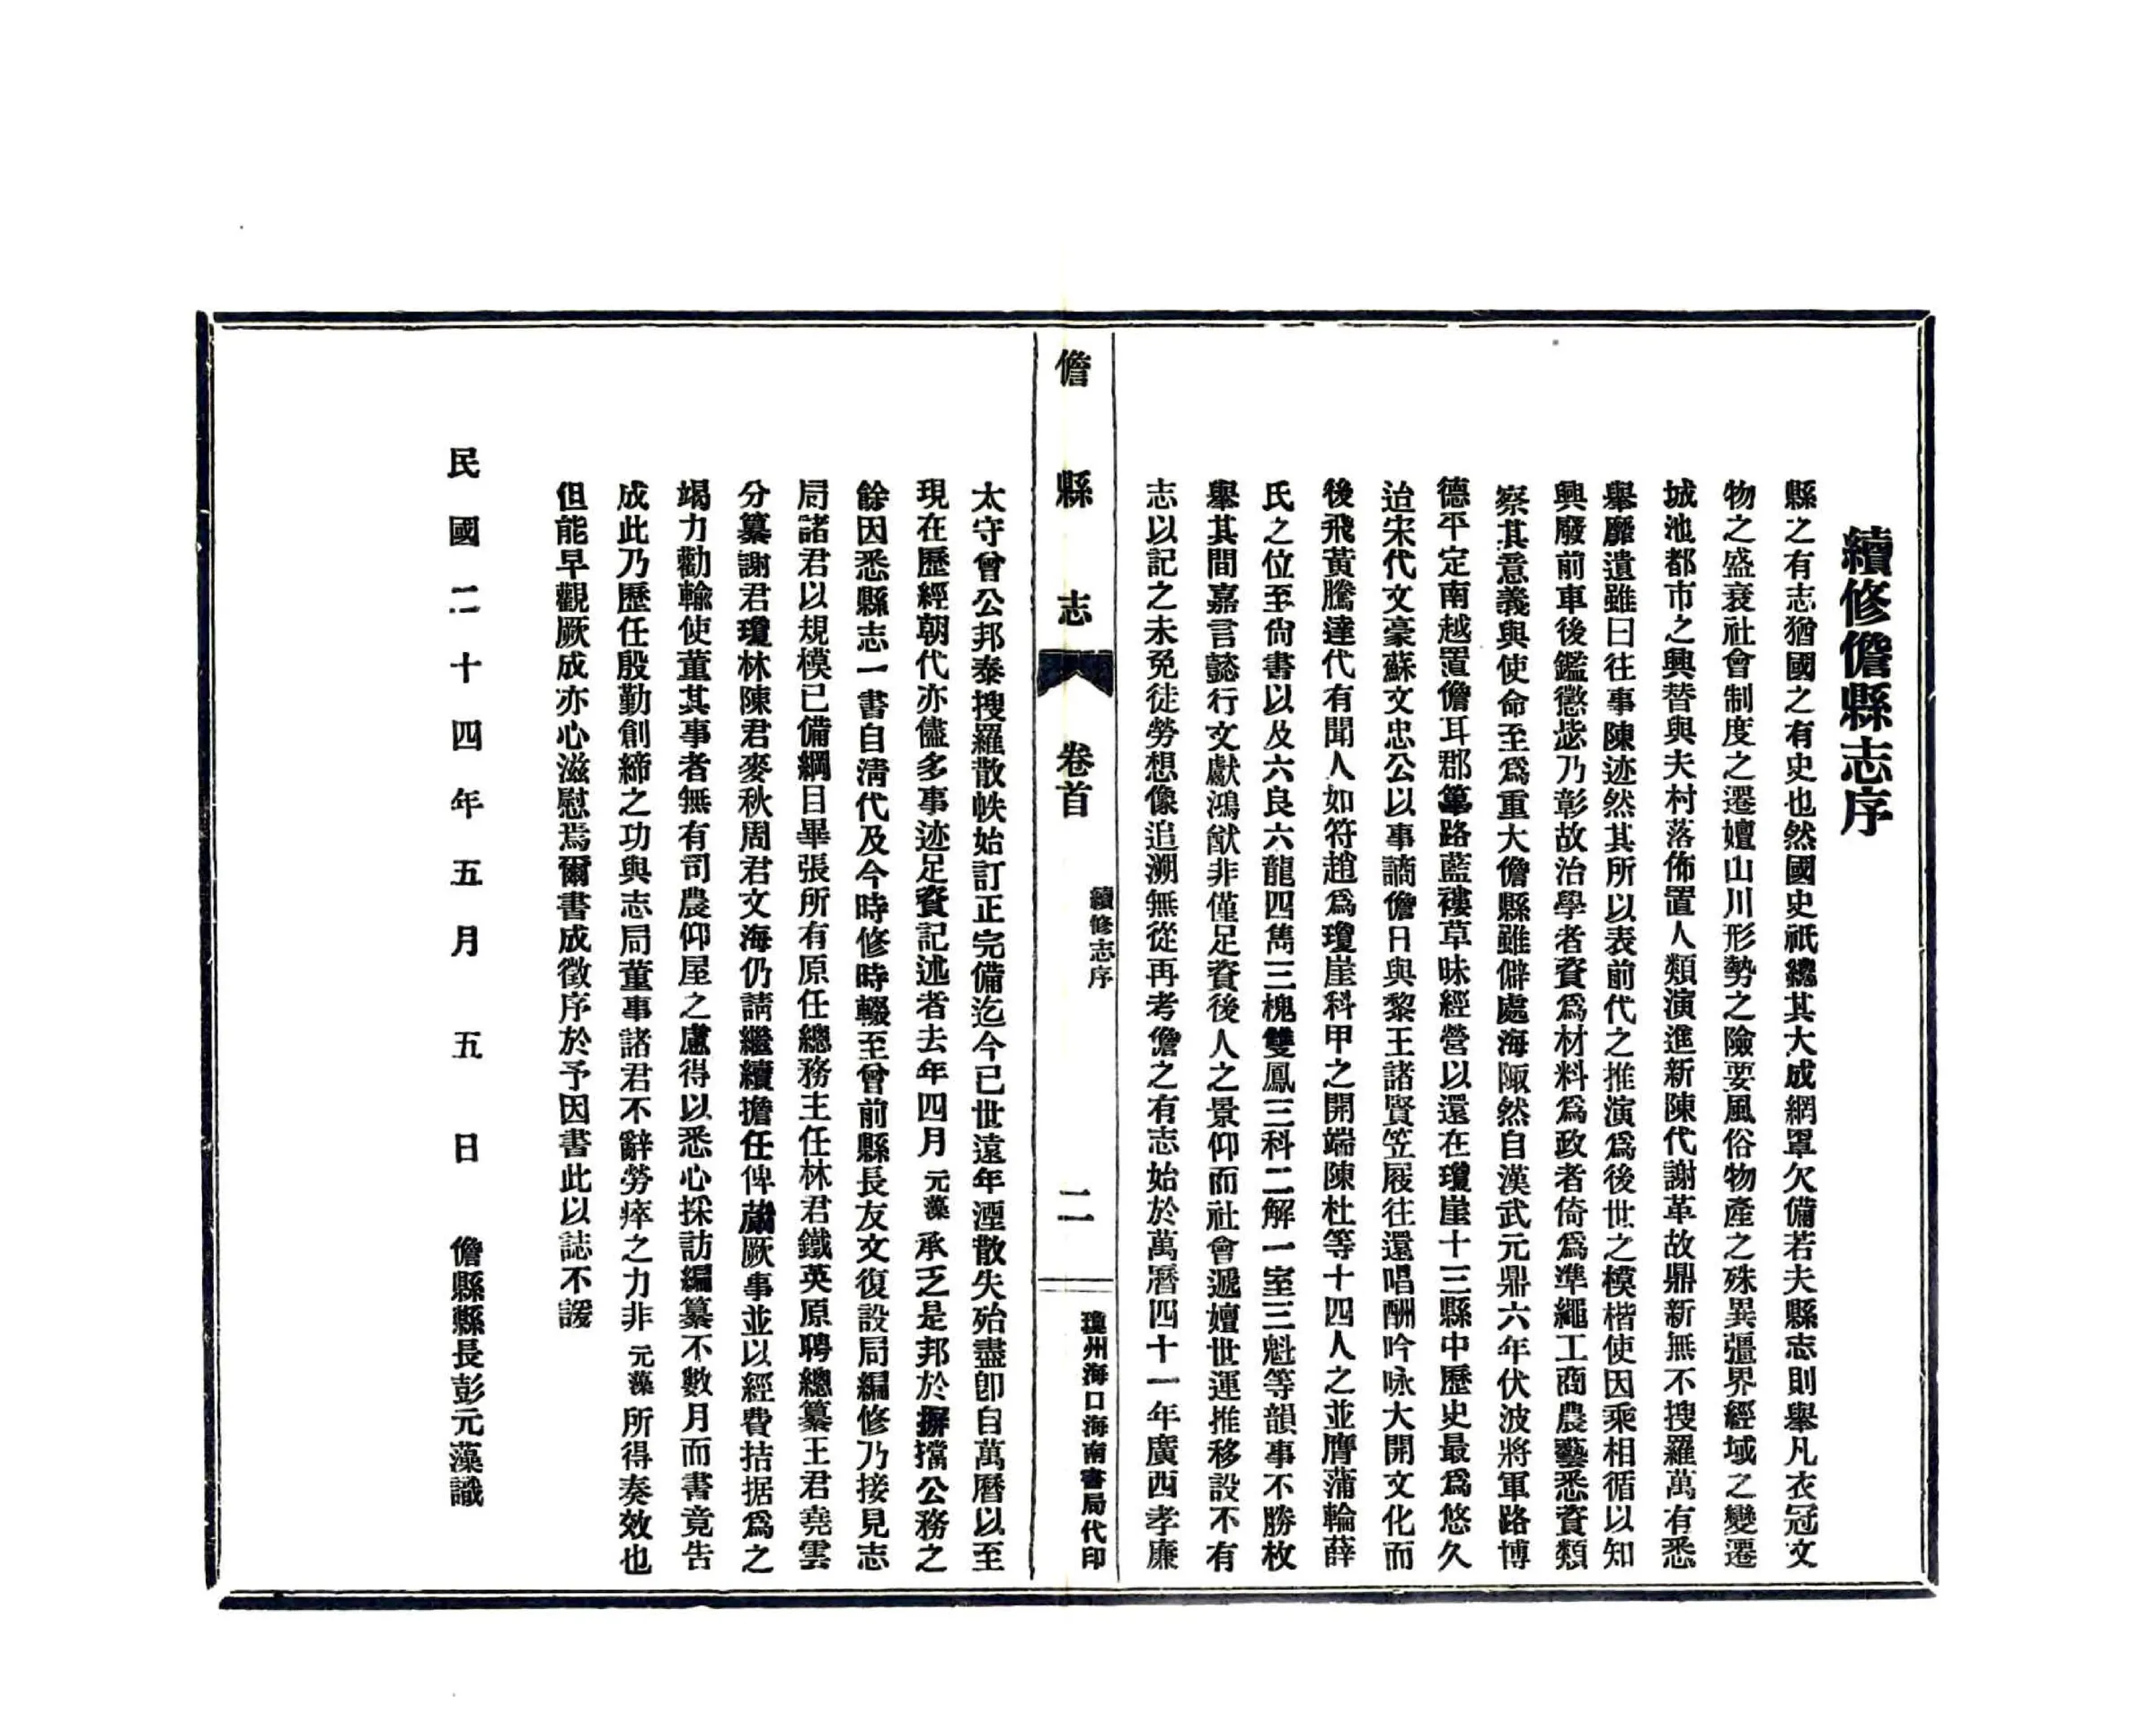 續修儋縣志序
縣之有志猶國之有史也然國史祇總其大成網罩欠備若夫縣志則舉凡衣冠文
物之盛衰社會制度之遷嬗山川形勢之險要風俗物產之殊異彊界經域之變遷
城池都市之興替與夫村落佈置人類演進新陳代謝革故鼎新無不搜羅萬有悉
舉靡遺雖曰往事陳迹然其所以表前代之推演爲後世之模楷使因乘相循以知
興廢前車後鑑懲毖乃彰故治學者資爲材料爲政者倚爲準繩工商農藝悉資類
察其意義與使命至爲重大儋縣雖僻處海陬然自漢武元鼎六年伏波將軍路博
德平定南越置儋耳郡篳路藍褸草昧經營以還在瓊崖十三縣中歷史最爲悠久
迨宋代文豪蘇文忠公以事謫儋日與黎王諸賢笠屐往還唱酬吟咏大開文化而
後飛黃騰達代有聞人如符趙爲瓊崖科甲之開端陳杜等十四人之並膺蒲輪薛
氏之位至尙書以及六良六龍四雋三槐雙鳳三科二解一室三魁等韻事不勝枚
舉其間嘉言懿行文獻鴻猷非僅足資後人之景仰而社會遞嬗世運推移設不有
志以記之未免徒勞想像追溯無從再考儋之有志始於萬曆四十一年廣西孝廉
儋縣志 卷首 續修志序 二 瓊州海口海南書局代印
太守曾公邦泰搜羅散帙始訂正完備迄今已世遠年湮散失殆盡卽自萬曆以至
現在歷經朝代亦儘多事迹足資記述者去年四月元藻承乏是邦於摒擋公務之
餘因悉縣志一書自淸代及今時修時輟至曾前縣長友文復設局編修乃接見志
局諸君以規模已備綱目畢張所有原任總務主任林君鐵英原聘總纂王君堯雲
分纂謝君瓊林陳君麥秋周君文海仍請繼續擔任俾蕆厥事並以經費拮据爲之
竭力勸輸使董其事者無有司農仰屋之慮得以悉心採訪編纂不數月而書竟告
成此乃歷任殷勤創締之功與志局董事諸君不辭勞瘁之力非元藻所得奏效也
但能早觀厥成亦心滋慰焉爾書成徵序於予因書此以誌不諼
民國二十四年五月五日 儋縣縣長彭元藻識